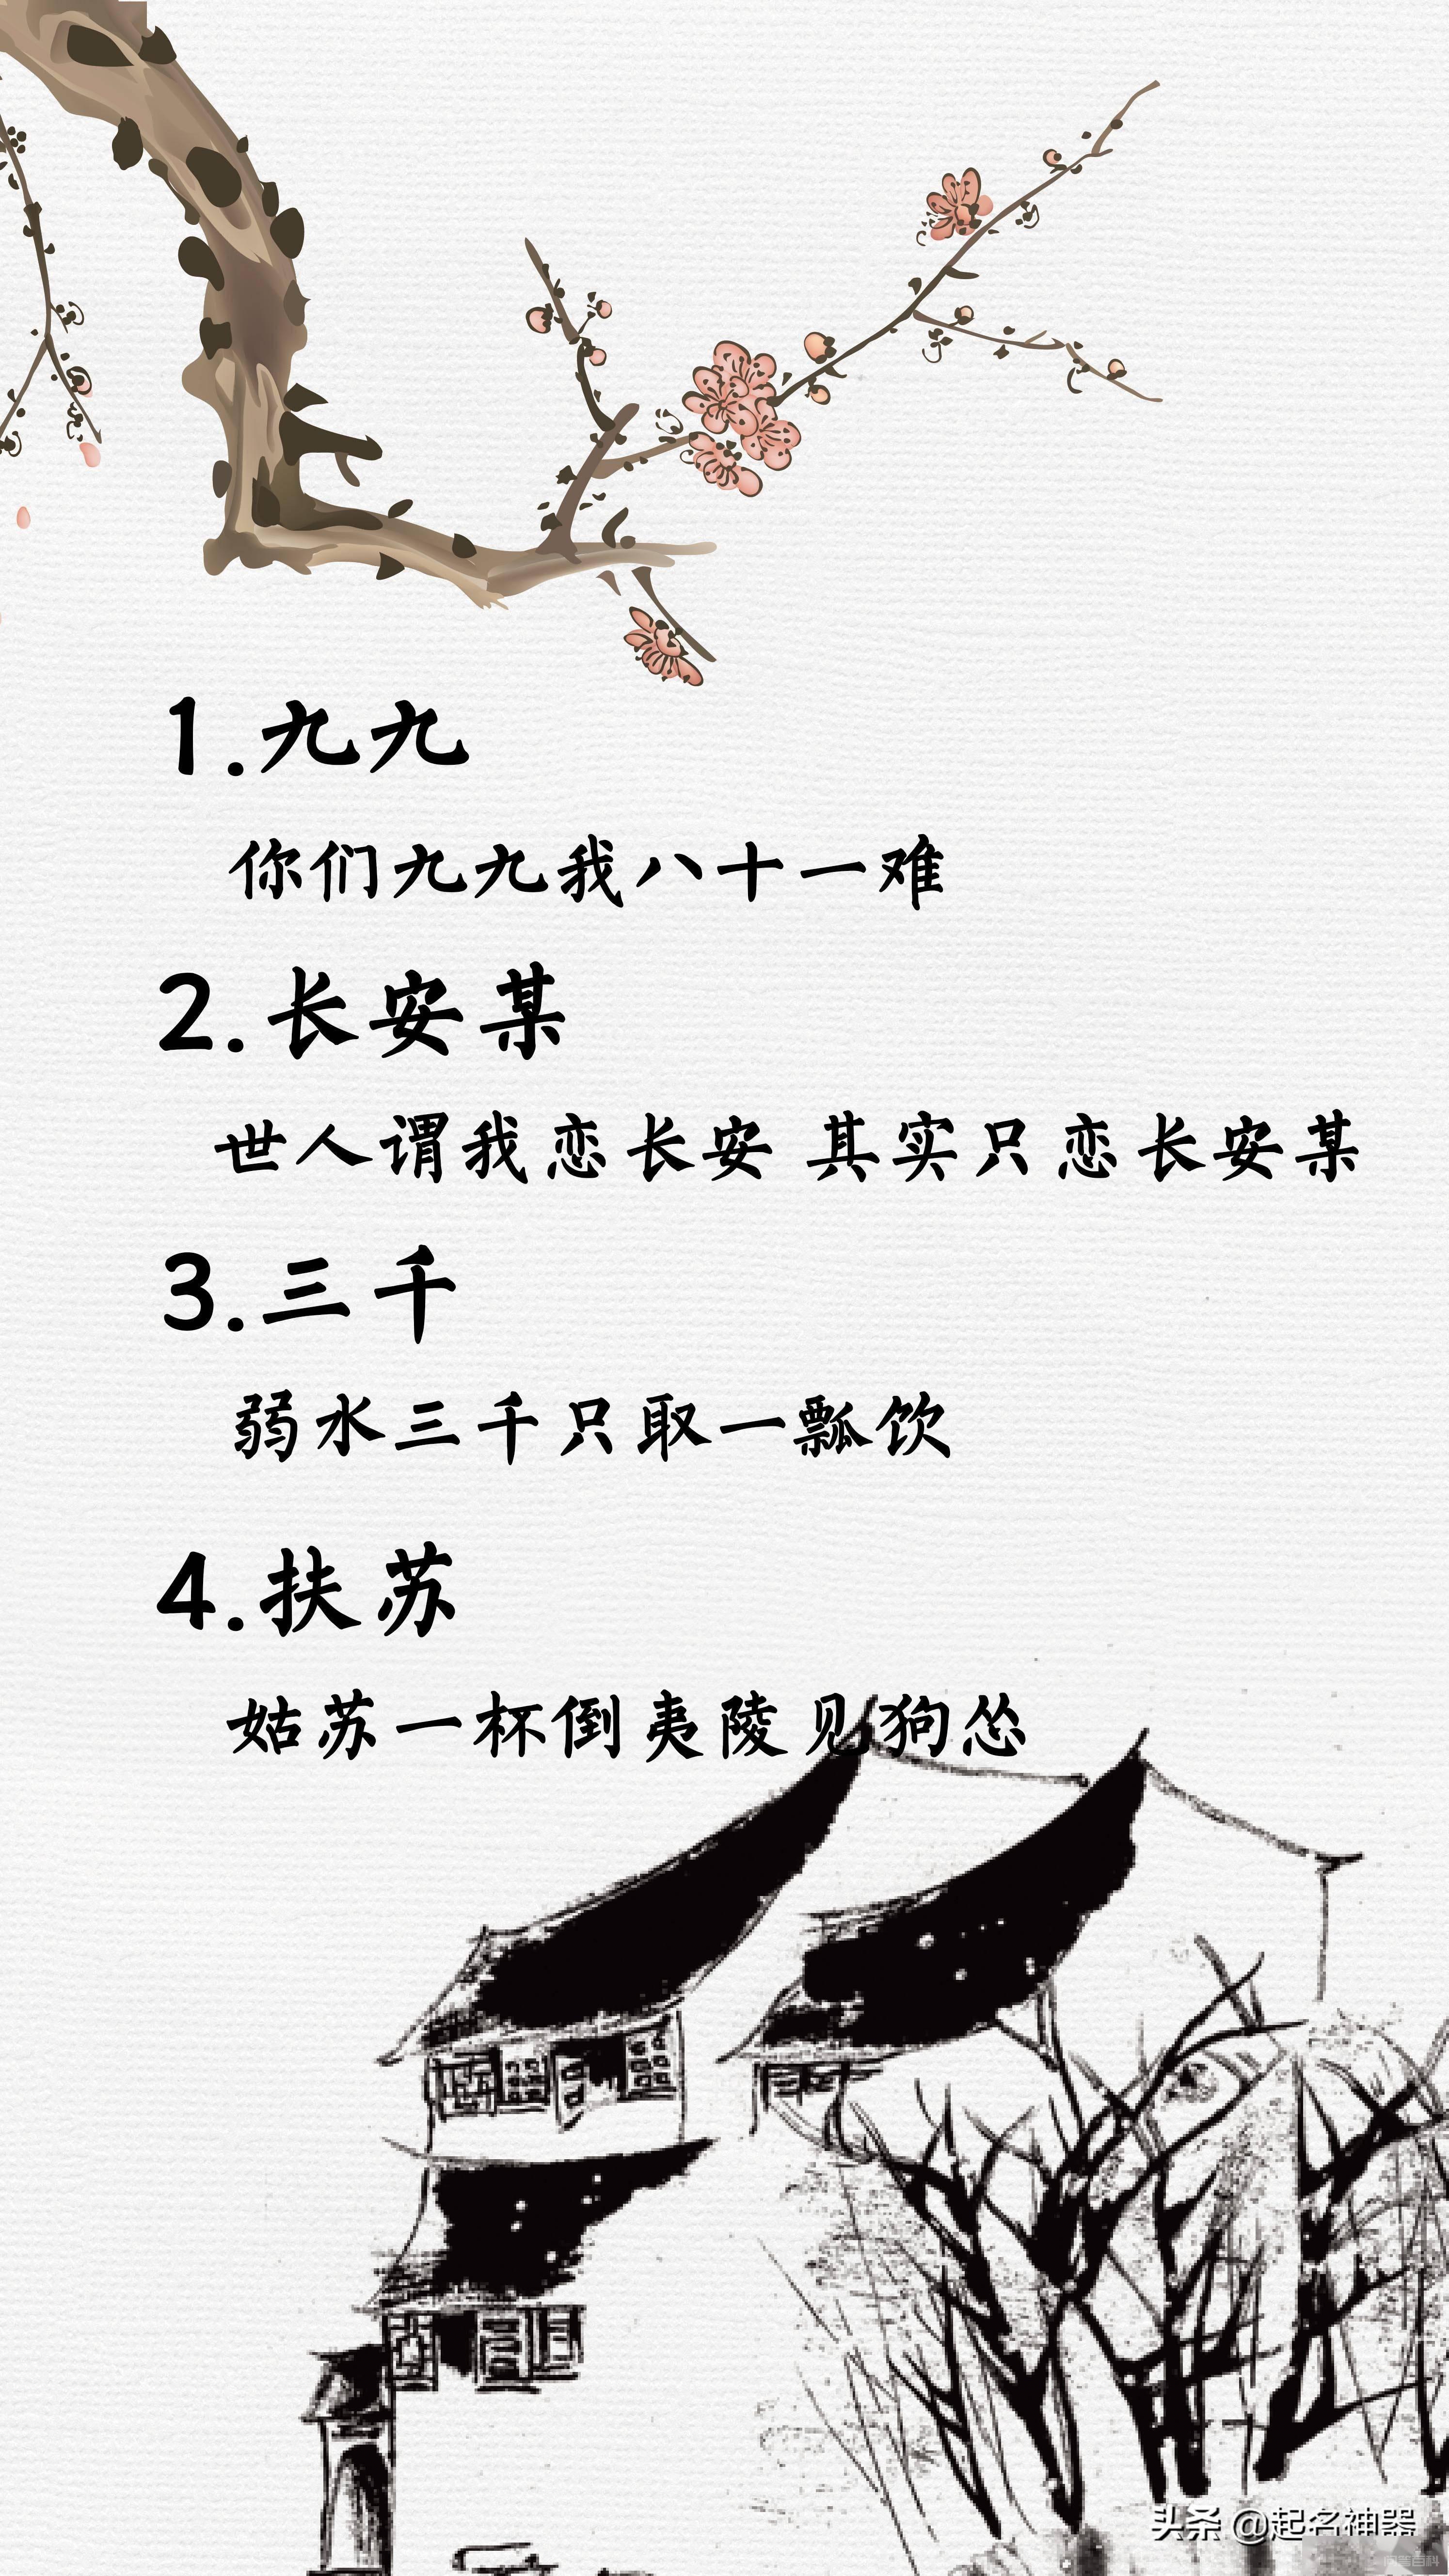 1.九九
你们九九我八十一难
2.长安某
世人谓我恋长安 其实只恋长安某
3.三千
弱水三千只取一瓢饮
4.扶苏
姑苏一杯倒夷陵见狗怂
头条 @起名神器